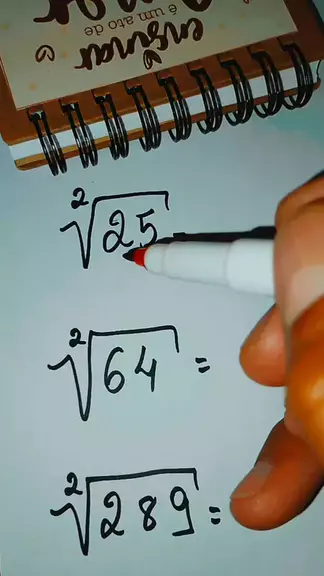 ensinar
é um ato de
²√25
²√64 =
²√289 =